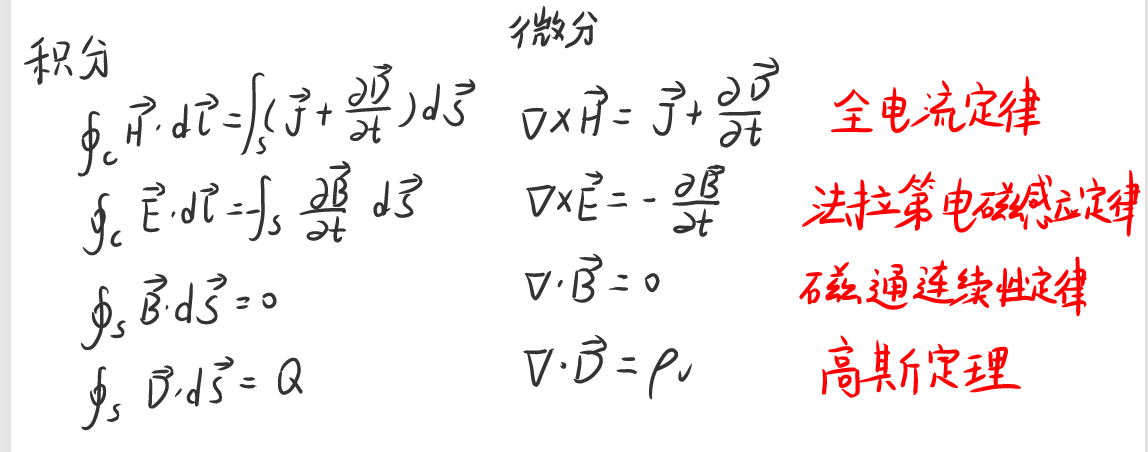 积分 微分
∮_c H⃗·dl⃗=∫_s(J⃗+∂D⃗/∂t)dS⃗ ∇×H⃗=J⃗+∂D⃗/∂t 全电流定律
∮_c E⃗·dl⃗=-∫_s ∂B⃗/∂t dS⃗ ∇×E⃗=-∂B⃗/∂t 法拉第电磁感应定律
∮_s B⃗·dS⃗=0 ∇·B⃗=0 磁通连续性定律
∮_s D⃗·dS⃗=Q ∇·D⃗=ρ_v 高斯定理